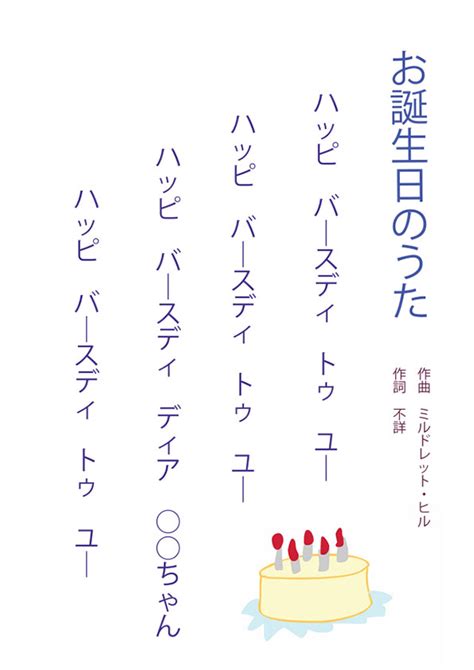 お誕生日のうた
作曲　ミルドレット・ヒル
作詞　不詳
ハッピ　バースディ　トゥ　ユー
ハッピ　バースディ　トゥ　ユー
ハッピ　バースディ　ディア　○○ちゃん
ハッピ　バースディ　トゥ　ユー